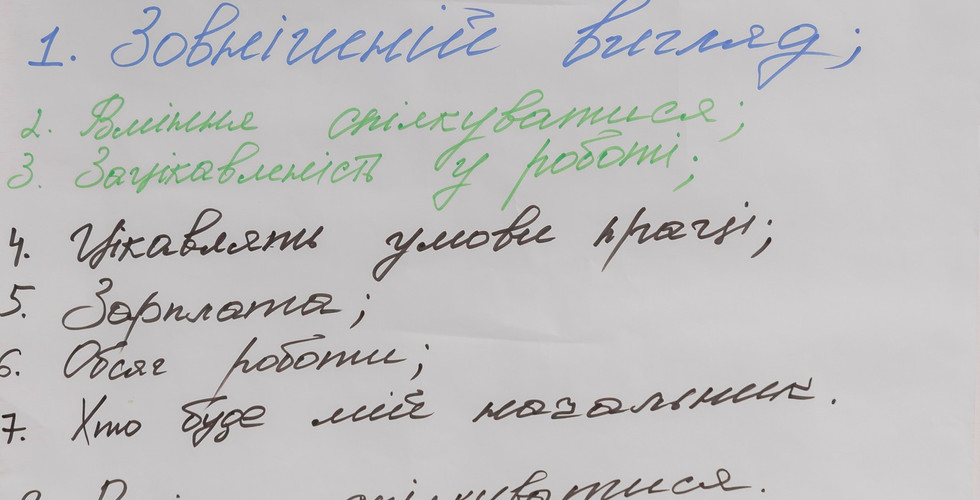 1. Зовнішній вигляд;
2. Вміння спілкуватися;
3. Зацікавленість у роботі;
4. Цікавлять умови праці;
5. Зарплата;
6. Обсяг роботи;
7. Хто буде мій начальник.
спілкуватися.